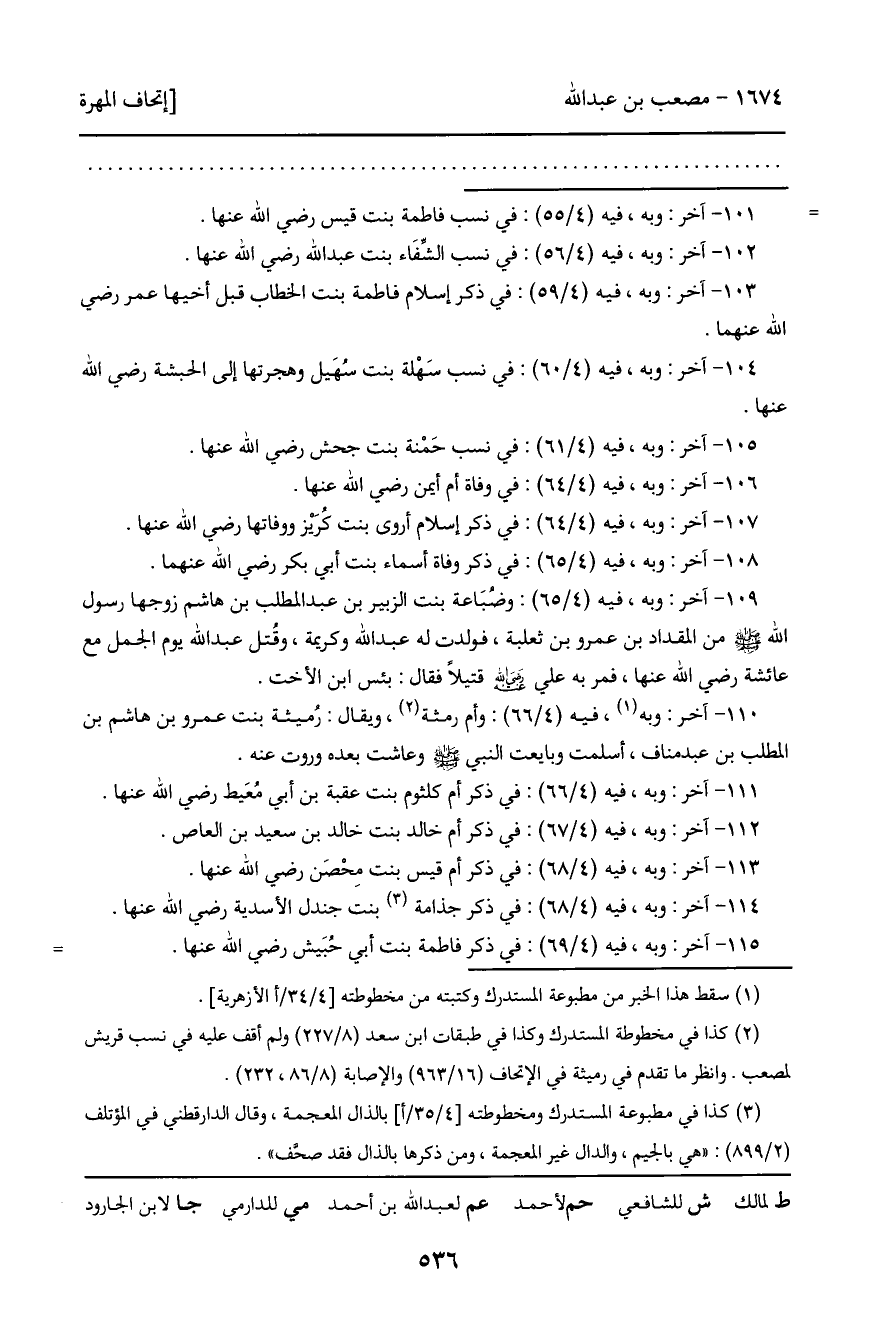 ١٦٧٤ - مصعب بن عبدالله [إتحاف المهرة
= ١٠١- آخر : وبه ، فيه (٥٥/٤) : في نسب فاطمة بنت قيس رضي الله عنها .
١٠٢- آخر : وبه ، فيه (٥٦/٤) : في نسب الشِّفَاء بنت عبدالله رضي الله عنها .
١٠٣- آخر : وبه ، فيه (٥٩/٤) : في ذكر إسلام فاطمة بنت الخطاب قبل أخيها عمر رضي
الله عنهما .
١٠٤- آخر : وبه ، فيه (٦٠/٤) : في نسب سَهْلة بنت سُهَيل وهجرتها إلى الحبشة رضي الله
عنها .
١٠٥- آخر : وبه ، فيه (٦١/٤) : في نسب حَمْنة بنت جحش رضي الله عنها .
١٠٦- آخر : وبه ، فيه (٦٤/٤) : في وفاة أم أيمن رضي الله عنها .
١٠٧- آخر : وبه ، فيه (٦٤/٤) : في ذكر إسلام أروى بنت كُرَيْز ووفاتها رضي الله عنها .
١٠٨- آخر : وبه ، فيه (٦٥/٤) : في ذكر وفاة أسماء بنت أبي بكر رضي الله عنهما .
١٠٩- آخر : وبه ، فيه (٦٥/٤) : وضُبَاعة بنت الزبير بن عبدالمطلب بن هاشم زوجها رسول
الله ﷺ من المقداد بن عمرو بن ثعلبة ، فولدت له عبدالله وكريمة ، وقُتل عبدالله يوم الجمل مع
عائشة رضي الله عنها ، فمر به علي رضي الله عنه قتيلاً فقال : بئس ابن الأخت .
١١٠- آخر : وبه(١) ، فيه (٦٦/٤) : وأم رمثة(٢) ، ويقال : رُميثة بنت عمرو بن هاشم بن
المطلب بن عبدمناف ، أسلمت وبايعت النبي ﷺ وعاشت بعده وروت عنه .
١١١- آخر : وبه ، فيه (٦٦/٤) : في ذكر أم كلثوم بنت عقبة بن أبي مُعَيط رضي الله عنها .
١١٢- آخر : وبه ، فيه (٦٧/٤) : في ذكر أم خالد بنت خالد بن سعيد بن العاص .
١١٣- آخر : وبه ، فيه (٦٨/٤) : في ذكر أم قيس بنت مِحْصَن رضي الله عنها .
١١٤- آخر : وبه ، فيه (٦٨/٤) : في ذكر جذامة (٣) بنت جندل الأسدية رضي الله عنها .
١١٥- آخر : وبه ، فيه (٦٩/٤) : في ذكر فاطمة بنت أبي حُبَيش رضي الله عنها . =
(١) سقط هذا الخبر من مطبوعة المستدرك وكتبته من مخطوطته [٣٤/٤/أ الأزهرية] .
(٢) كذا في مخطوطة المستدرك وكذا في طبقات ابن سعد (٢٢٧/٨) ولم أقف عليه في نسب قريش
لمصعب . وانظر ما تقدم في رميثة في الإتحاف (٩٦٣/١٦) والإصابة (٨٦/٨ ، ٢٣٢) .
(٣) كذا في مطبوعة المستدرك ومخطوطته [٣٥/٤/أ] بالذال المعجمة ، وقال الدارقطني في المؤتلف
(٨٩٩/٢) : «هي بالجيم ، والدال غير المعجمة ، ومن ذكرها بالذال فقد صحَّف» .
ط لمالك ش للشافعي حم لأحمد عم لعبدالله بن أحمد مي للدارمي جا لابن الجارود
٥٣٦